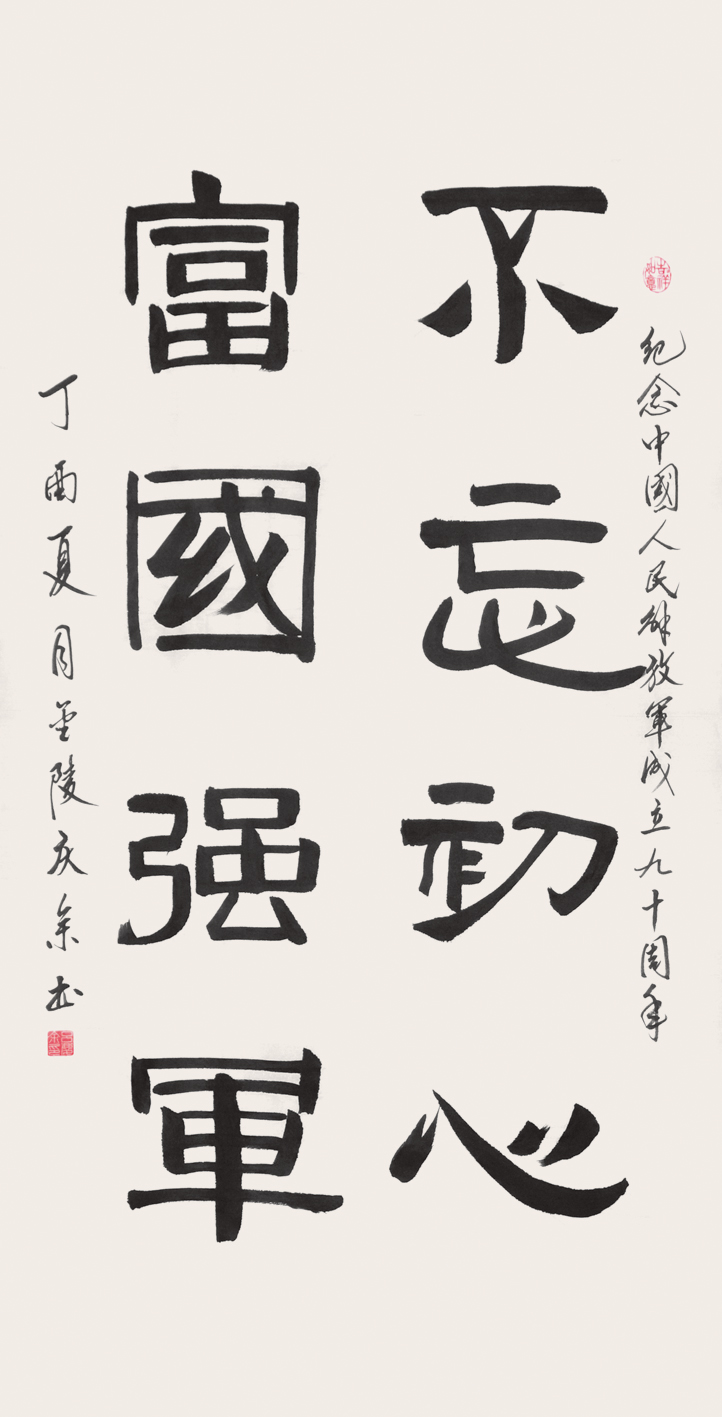 纪念中國人民解放軍成立九十周年
不忘初心
富國强軍
丁酉夏月金陵庆余书